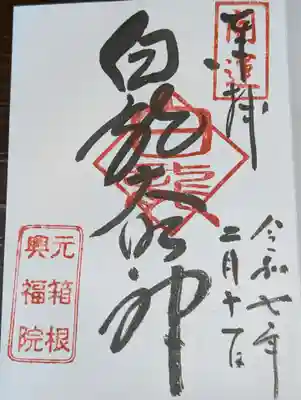 奉拝
白龍大明神
白龍
令和七年
二月十一日
元箱根
興福院